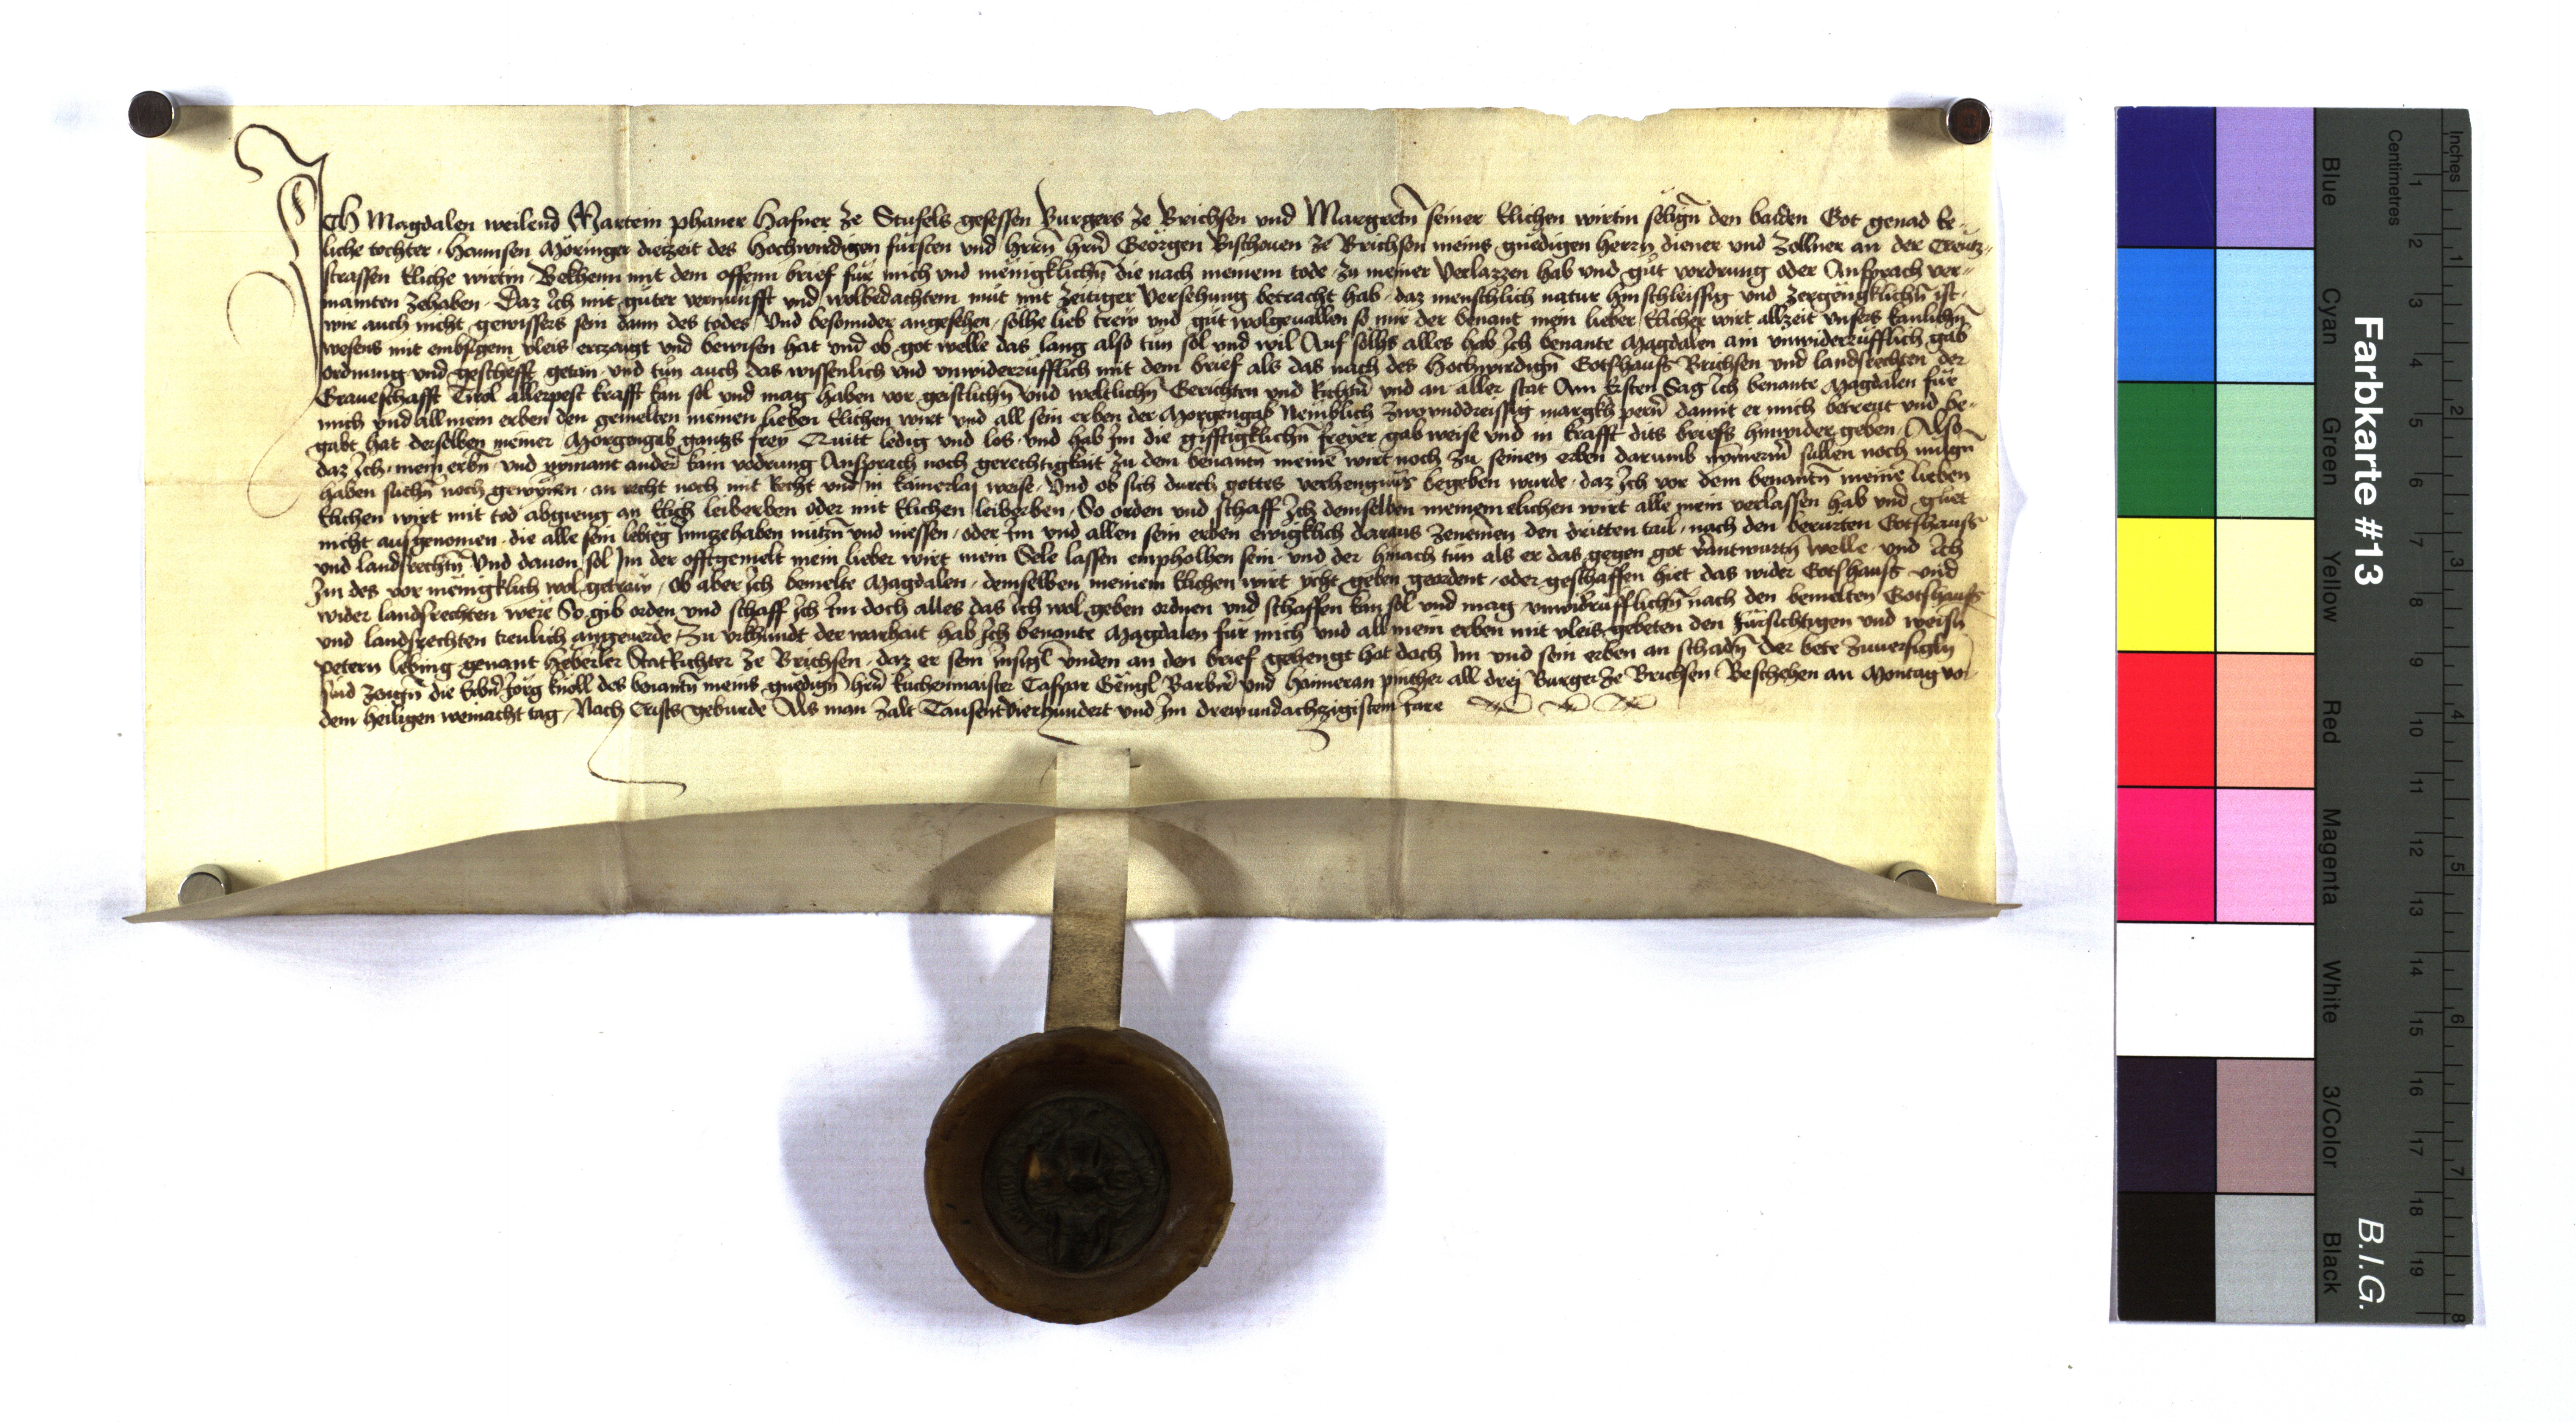 Ich Magdalen weilend Martein phaner Hafner ze Stufels gesessen Burgers ze Brichsen und Margretn̄ seiner Elichen wirtin selign̄ den baiden Got genad ee-
liche tochter. Hannsen Möringer diezeit des Hochwirdigen fürsten und herrn̄ hrn̄ Georgen Bischouen ze Brichsen meins gnedigen herrn diener und Zollner an der Creutz-
strassen Eliche wirtin. Bekhenn mit dem offenn brief für mich und menigklichn̄ die nach meinem tode zu meiner Verlazzen hab und gut vordrung oder Ansprach ver-
mainten zehaben. Daz Ich mit guter vernunfft und wolbedachtem mut mit zeitiger Versehung betracht hab. daz menschlich natur hinschleissig und zergengklichn̄ ist.
wir auch nicht gewissers sein dann des todes Und besonnder angesehen, solhe lieb trew und gut wolgeuallen so mir der benant mein lieber Elicher wirt allzeit unsers kanlichn̄
wesens mit embsigem vleis erczaigt und bewisen hat und ob got welle das lang also tun sol und wil Auf solhs alles hab Ich benante Magdalen ain unwiderrüfflich gab
ordnung und geschefft getan und tun auch das wissenlich und unwiderrüfflich mit dem brief als das nach des Hochwirdign̄ Gotshaufs Brichsen und landsrechten der
Graueschafft Tirol allerpest krafft kan sol und mag haben vor geistlichn̄ und weltlichn̄ Gerichten und Richtn̄ und an aller stat Am Ersten Sag Ich benante Magdalen für
mich und all mein erben den gemelten meinen lieben Elichen wirt und all sein erben der Morgengab Nemblich zwounddreissig margkh pern̄ damit er mich betreut und be-
gabt hat derselben meiner Morgengab gantzs frey Quitt ledig und los. und hab Im die gifftigklichn̄ freyer gab weise und in krafft dits briefs hinwider geben. Also
daz Ich. mein erbn̄ und nymant ander kain vodrung Ansprach noch gerechtigkait zu dem benantn̄ meinē wirt noch zu seinen erben darumb nymerm̄ sullen noch mügn̄
haben suchn̄ noch gewynnen. an recht noch mit Recht und in kainerlaj weise. Und ob sich durch gottes verhengnuss begeben wurde. daz Ich vor dem benantn̄ meinē lieben
Elichen wirt mit tod abgieng an Elich leiberben oder mit Elichen leiberben. So orden und schaff Ich demselben meinem elichen wirt alle mein verlassen hab und guet
nicht ausgenomen. die alle sein lebteg Innzehaben nützn̄ und niessen. oder Im und allen sein erben ewigklich daraus zenemen den dritten tail. nach den berurten Gotshaufs
und landsrechtn̄ Und dauon sol Im der offtgemelt mein lieber wirt mein Sele lassen empholhen sein. und der hinach tun als er das gegen got v̄antwurtn̄ welle. und Ich
Im des vor menigklich wol getraw. Ob aber Ich bemelte Magdalen. demselben meinem Elichen wirt ycht geben geordent. oder geschaffen hiet das wider Gotshaufs und
wider landsrechten were So gib orden und schaff Ich Im doch alles das Ich wol geben ordnen und schaffen kan sol und mag unwidrüfflichn̄ nach den bemelten Gotshaufs
und landsrechten treulich angeuerde Zu urkhundt der warhait hab Ich benante Magdalen für mich und all mein erben mit vleis gebeten den fürsichtigen und weisn̄
petern lebing genant Heberler StatRichter ze Brichsen. daz er sein Insigl unden an den brief gehengt hat doch Im und sein erben an schadn̄ Der bete zuuersigln̄
sind zeugn̄ die Erbn̄ Jorg knoll des benantn̄ meins gnedign̄ hrn̄ kuchenmaister Caspar Gengl Barbir̄ und haimeran pinther all drej Burger ze Brichsen Beschehen an Montag vor
dem heiligen weinacht tag. Nach Crists geburde Als man zalt Tausentvierhundert und Im drewundachzigistem Jare
Farbkarte #13
B.I.G.
Centimetres
Inches
Blue
Cyan
Green
Yellow
Red
Magenta
White
3/Color
Black
1 2 3 4 5 6 7 8 9 10 11 12 13 14 15 16 17 18 19
1 2 3 4 5 6 7 8